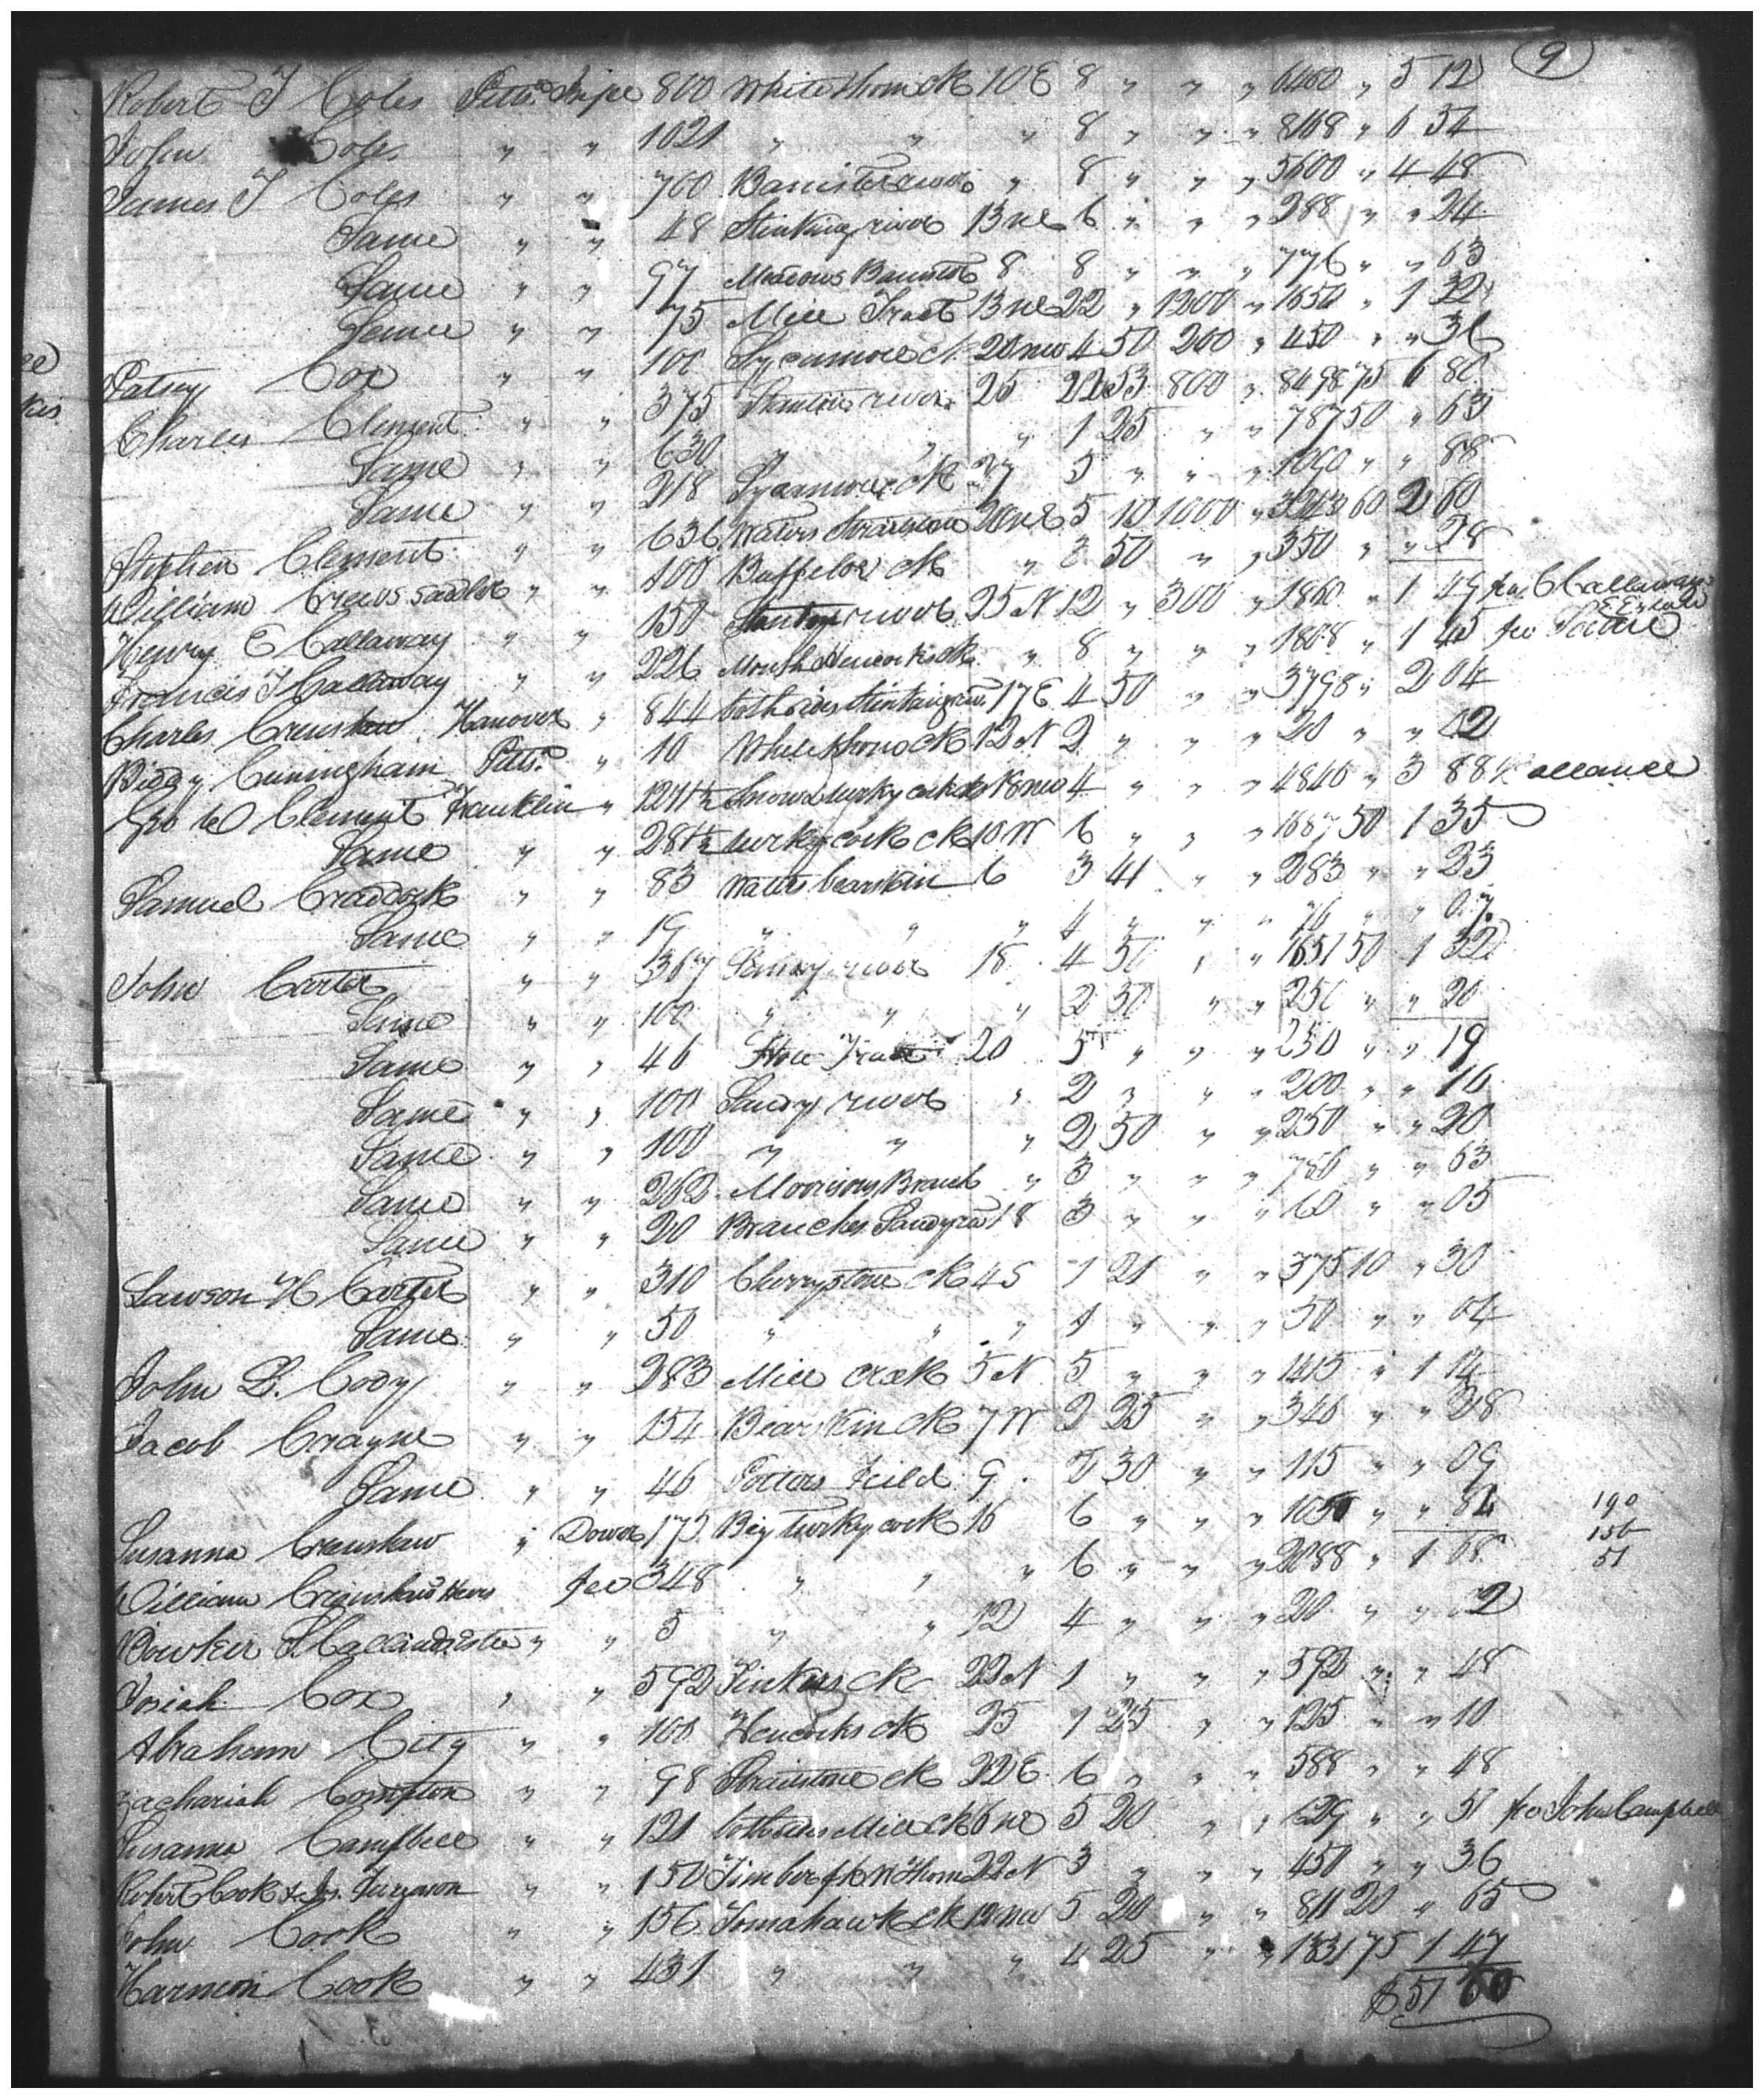 9
Robert T Coles Pitts. 800 White thorn ck 10 E 8 " " " 6400 " 5 12
John Coles " " 1021 " " " 8 " " " 8168 " 6 54
James T Coles " " 700 Banister river " 8 " " " 5600 " 4 48
Same " " 48 Stinking river 13 ne 6 " " " 288 " " 24
Same " " 97 Meadows Banister 8 8 " " " 776 " " 63
Same " " 75 Mill Tract 13 ne 22 " 1200 " 1650 " 1 32
Patsey Cox " " 100 Sycamore ck 20 nw 4 50 200 " 450 " " 36
Charles Clement " " 375 Stanton river 25 22 53 800 " 8498 75 6 80
Same " " 630 " " " 1 25 " " 787 50 " 63
Same " " 218 Sycamore ck 27 5 " " " 1090 " " 88
Stephen Clement " " 636 Waters Straitstone 20 ne 5 10 1000 " 3243 60 2 60
William Crews sadler " " 100 Buffeloe ck " 3 50 " " 350 " " 28
Henry C Callaway " " 150 Stanton river 25 N 12 " 300 " 1860 " 1 49 C Callaways Estate
Francis T Callaway " " 226 Mouth ck " 8 " " " 1808 " 1 45
Charles Crenshaw Hanover " 844 both sides Stinking riv. 17 E 4 50 " " 3798 " 2 04
Biddy Cuningham Pitts. " 10 White thorn ck 12 N 2 " " " 20 " " 02
Geo W Clement Franklin " 1211½ Snow & turkycock 18 nw 4 " " " 4846 " 3 88
Same " " 281½ turkycock ck 10 W 6 " " " 1687 50 1 35
Samuel Craddock " " 83 Waters bearskin 6 3 41 " " 283 " " 23
Same " " 19 " " " 4 " " " 76 " " 07
John Carter " " 367 Sandy river 18 4 50 " " 1651 50 1 32
Same " " 100 " " " 2 50 " " 250 " " 20
Same " " 46 Tract 20 5 " " " 230 " " 19
Same " " 100 Sandy river " 2 " " " 200 " " 16
Same " " 100 " " " 2 50 " " 250 " " 20
Same " " 262 Morrisons Branch " 3 " " " 786 " " 63
Same " " 20 Branches Sandy riv 18 3 " " " 60 " " 05
Lawson H Carter " " 310 Cherrystone ck 4 S 1 21 " " 375 10 " 30
Same " " 50 " " " 1 " " " 50 " " 04
John B. Cody " " 283 Mill creek 5 N 5 " " " 1415 " 1 14
Jacob Crayne " " 154 Bearskin ck 7 W 2 25 " " 346 " " 28
Same " " 46 Feild 9 2 50 " " 115 " " 09
Susanna Crenshaw " Dower 175 Big turkycock 16 6 " " " 1050 " " 84 190
William Crenshaws Heirs fee 348 " " " 6 " " " 2088 " 1 68 156
51
Bowker " " 5 " " 12 4 " " " 20 " " 2
Josiah Cox " " 592 ck 22 N 1 " " " 592 " " 48
Abraham " " 100 ck 25 1 25 " " 125 " " 10
Zachariah Compton " " 98 Straitstone ck 22 E 6 " " " 588 " " 48
Susanna Campbell " " 121 both sides Mill ck 6 nw 5 20 " " 629 " " 51 fro John Campbell
Robert Cook & Jas. Furguson " " 150 Timber fk W Thorn 22 N 3 " " " 450 " " 36
John Cook " " 156 Tomahawk ck 12 nw 5 20 " " 811 20 " 65
Harmon Cook " " 431 " " " 4 25 " " 1831 75 1 47
$51 60